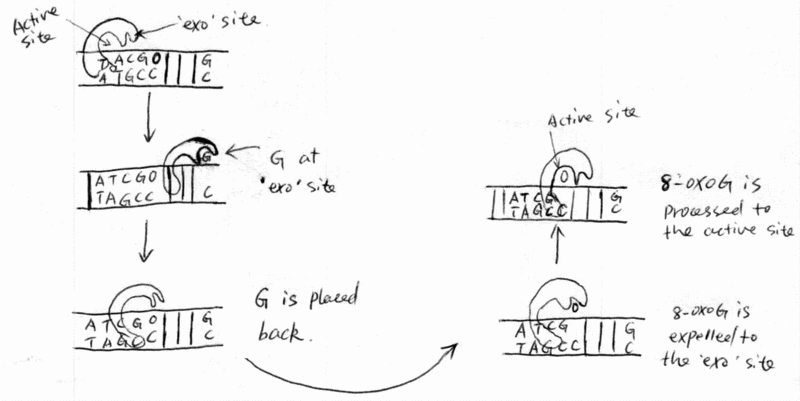 Active
site
'exo' site
ACGO G
ATGCC C
G at
'exo' site
ATCGO G
TAGCC C
G is placed
back.
ATCGO G
TAGCC C
8-oxoG is
expelled to
the 'exo' site
O
ATCG G
TAGCC C
Active site
8-oxoG is
processed to
the active site
O
ATCG G
TAGCC C